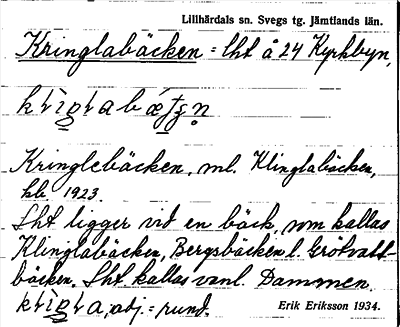 Lillhärdals sn. Svegs tg. Jämtlands län.
Kringlabäcken = lht å 24 Kyrkbyn,
Kringlebäcken, ml. Klinglabäcken,
kb. 1923.
Lht ligger vid en bäck, som kallas
Klinglabäcken, Bergsbäcken l. Grötvatt-
bäcken. Lht kallas vanl. Dammen.
adj. = rund.
Erik Eriksson 1934.